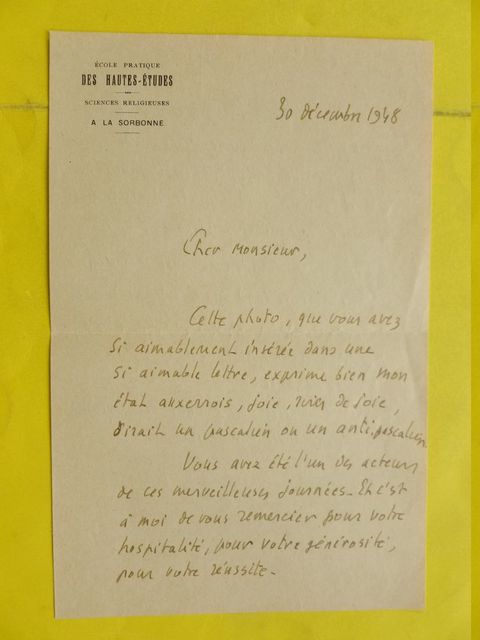 ÉCOLE PRATIQUE
DES HAUTES-ÉTUDES
SCIENCES RELIGIEUSES
A LA SORBONNE
30 décembre 1948
Cher Monsieur,
Cette photo, que vous avez
si aimablement insérée dans une
si aimable lettre, exprime bien mon
état auxerrois, joie, de joie,
dirait un pascalien ou un antipascalien.
Vous avez été l'un des acteurs
de ces merveilleuses journées. Et c'est
à moi de vous remercier pour votre
hospitalité, pour votre générosité,
pour votre réussite.